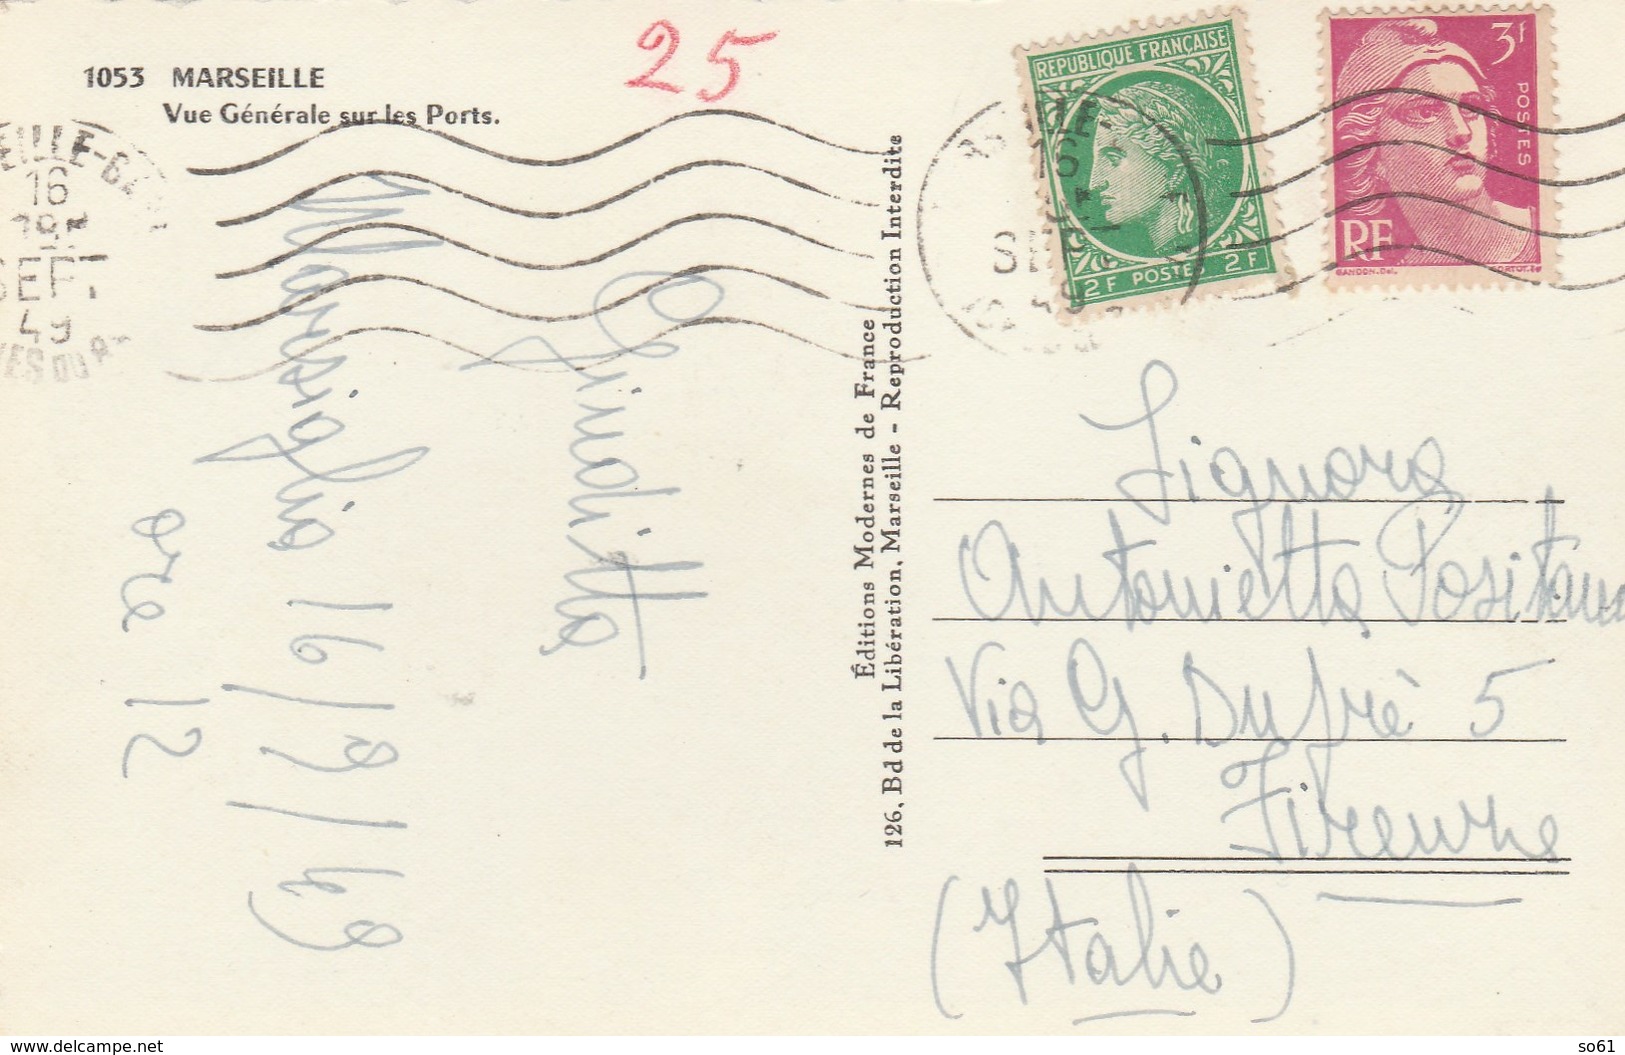 1053 MARSEILLE
Vue Générale sur les Ports.
25
16
SEPT
49
Giuditta
Marsiglia 16/9/49
ore 12
Éditions Modernes de France
126, Bd de la Libération, Marseille - Reproduction Interdite
REPUBLIQUE FRANÇAISE
2F POSTES 2F
3f
POSTES
RF
GANDON.Del.
Signora
Antonietta Positano
Via G. Dufrè 5
Firenze
(Italie)
www.delcampe.net
so61